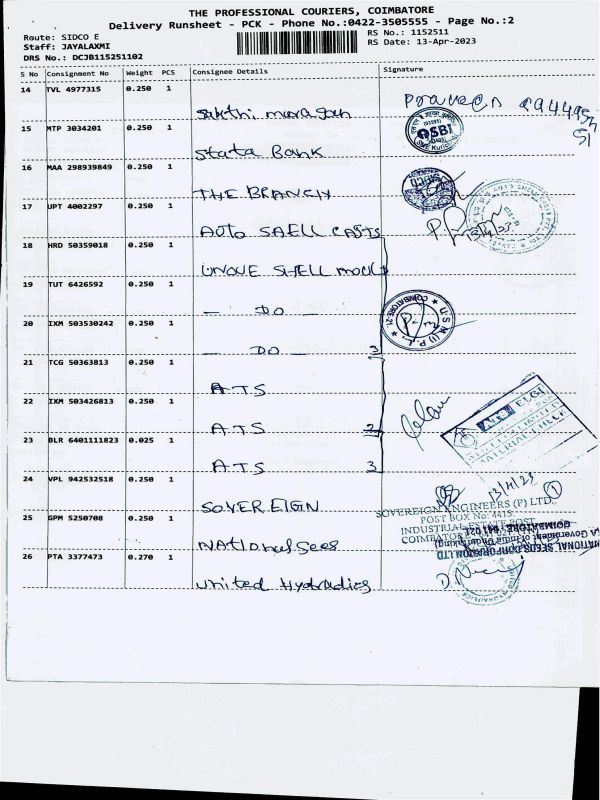 THE PROFESSIONAL COURIERS, COIMBATORE
Delivery Runsheet - PCK - Phone No.:0422-3505555 - Page No.:2
Route: SIDCO E
RS No.: 1152511
Staff: JAYALAXMI
RS Date: 13-Apr-2023
DRS No.: DCJB115251102
S No Consignment No Weight PCS Consignee Details Signature
14 TVL 4977315 0.250 1
Sakthi murugan Praveen
15 MTP 3034201 0.250 1
Stata Bank SBI
16 MAA 298939849 0.250 1
THE BRANCH
17 UPT 4002297 0.250 1
Auto SAELL CASTS
18 HRD 50359018 0.250 1
UNQUE SHELL MOULD
19 TUT 6426592 0.250 1
— DO —
20 IXM 503530242 0.250 1
— DO — 3
21 TCG 50363813 0.250 1
ATS
22 IXM 503426813 0.250 1
ATS 2
23 BLR 6401111823 0.025 1
ATS 3
24 VPL 942532518 0.250 1
SOVEREIGN
13/4/23 1
SOVEREIGN ENGINEERS (P) LTD.,
POST BOX No: 4415,
INDUSTRIAL ESTATE POST,
COIMBATORE - 641 021
25 GPM 5250708 0.250 1
National Sees
NATIONAL SEEDS CORPORATION LTD
(A Government of India Undertaking)
COIMBATORE
26 PTA 3377473 0.270 1
United Hydradics